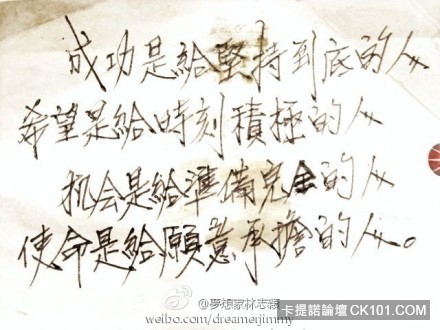 成功是給堅持到底的人
希望是給時刻積極的人
机会是給準備完全的人
使命是給願意承擔的人。
@夢想家林志穎
weibo.com/dreamerjimmy
卡提諾論壇CK101.COM